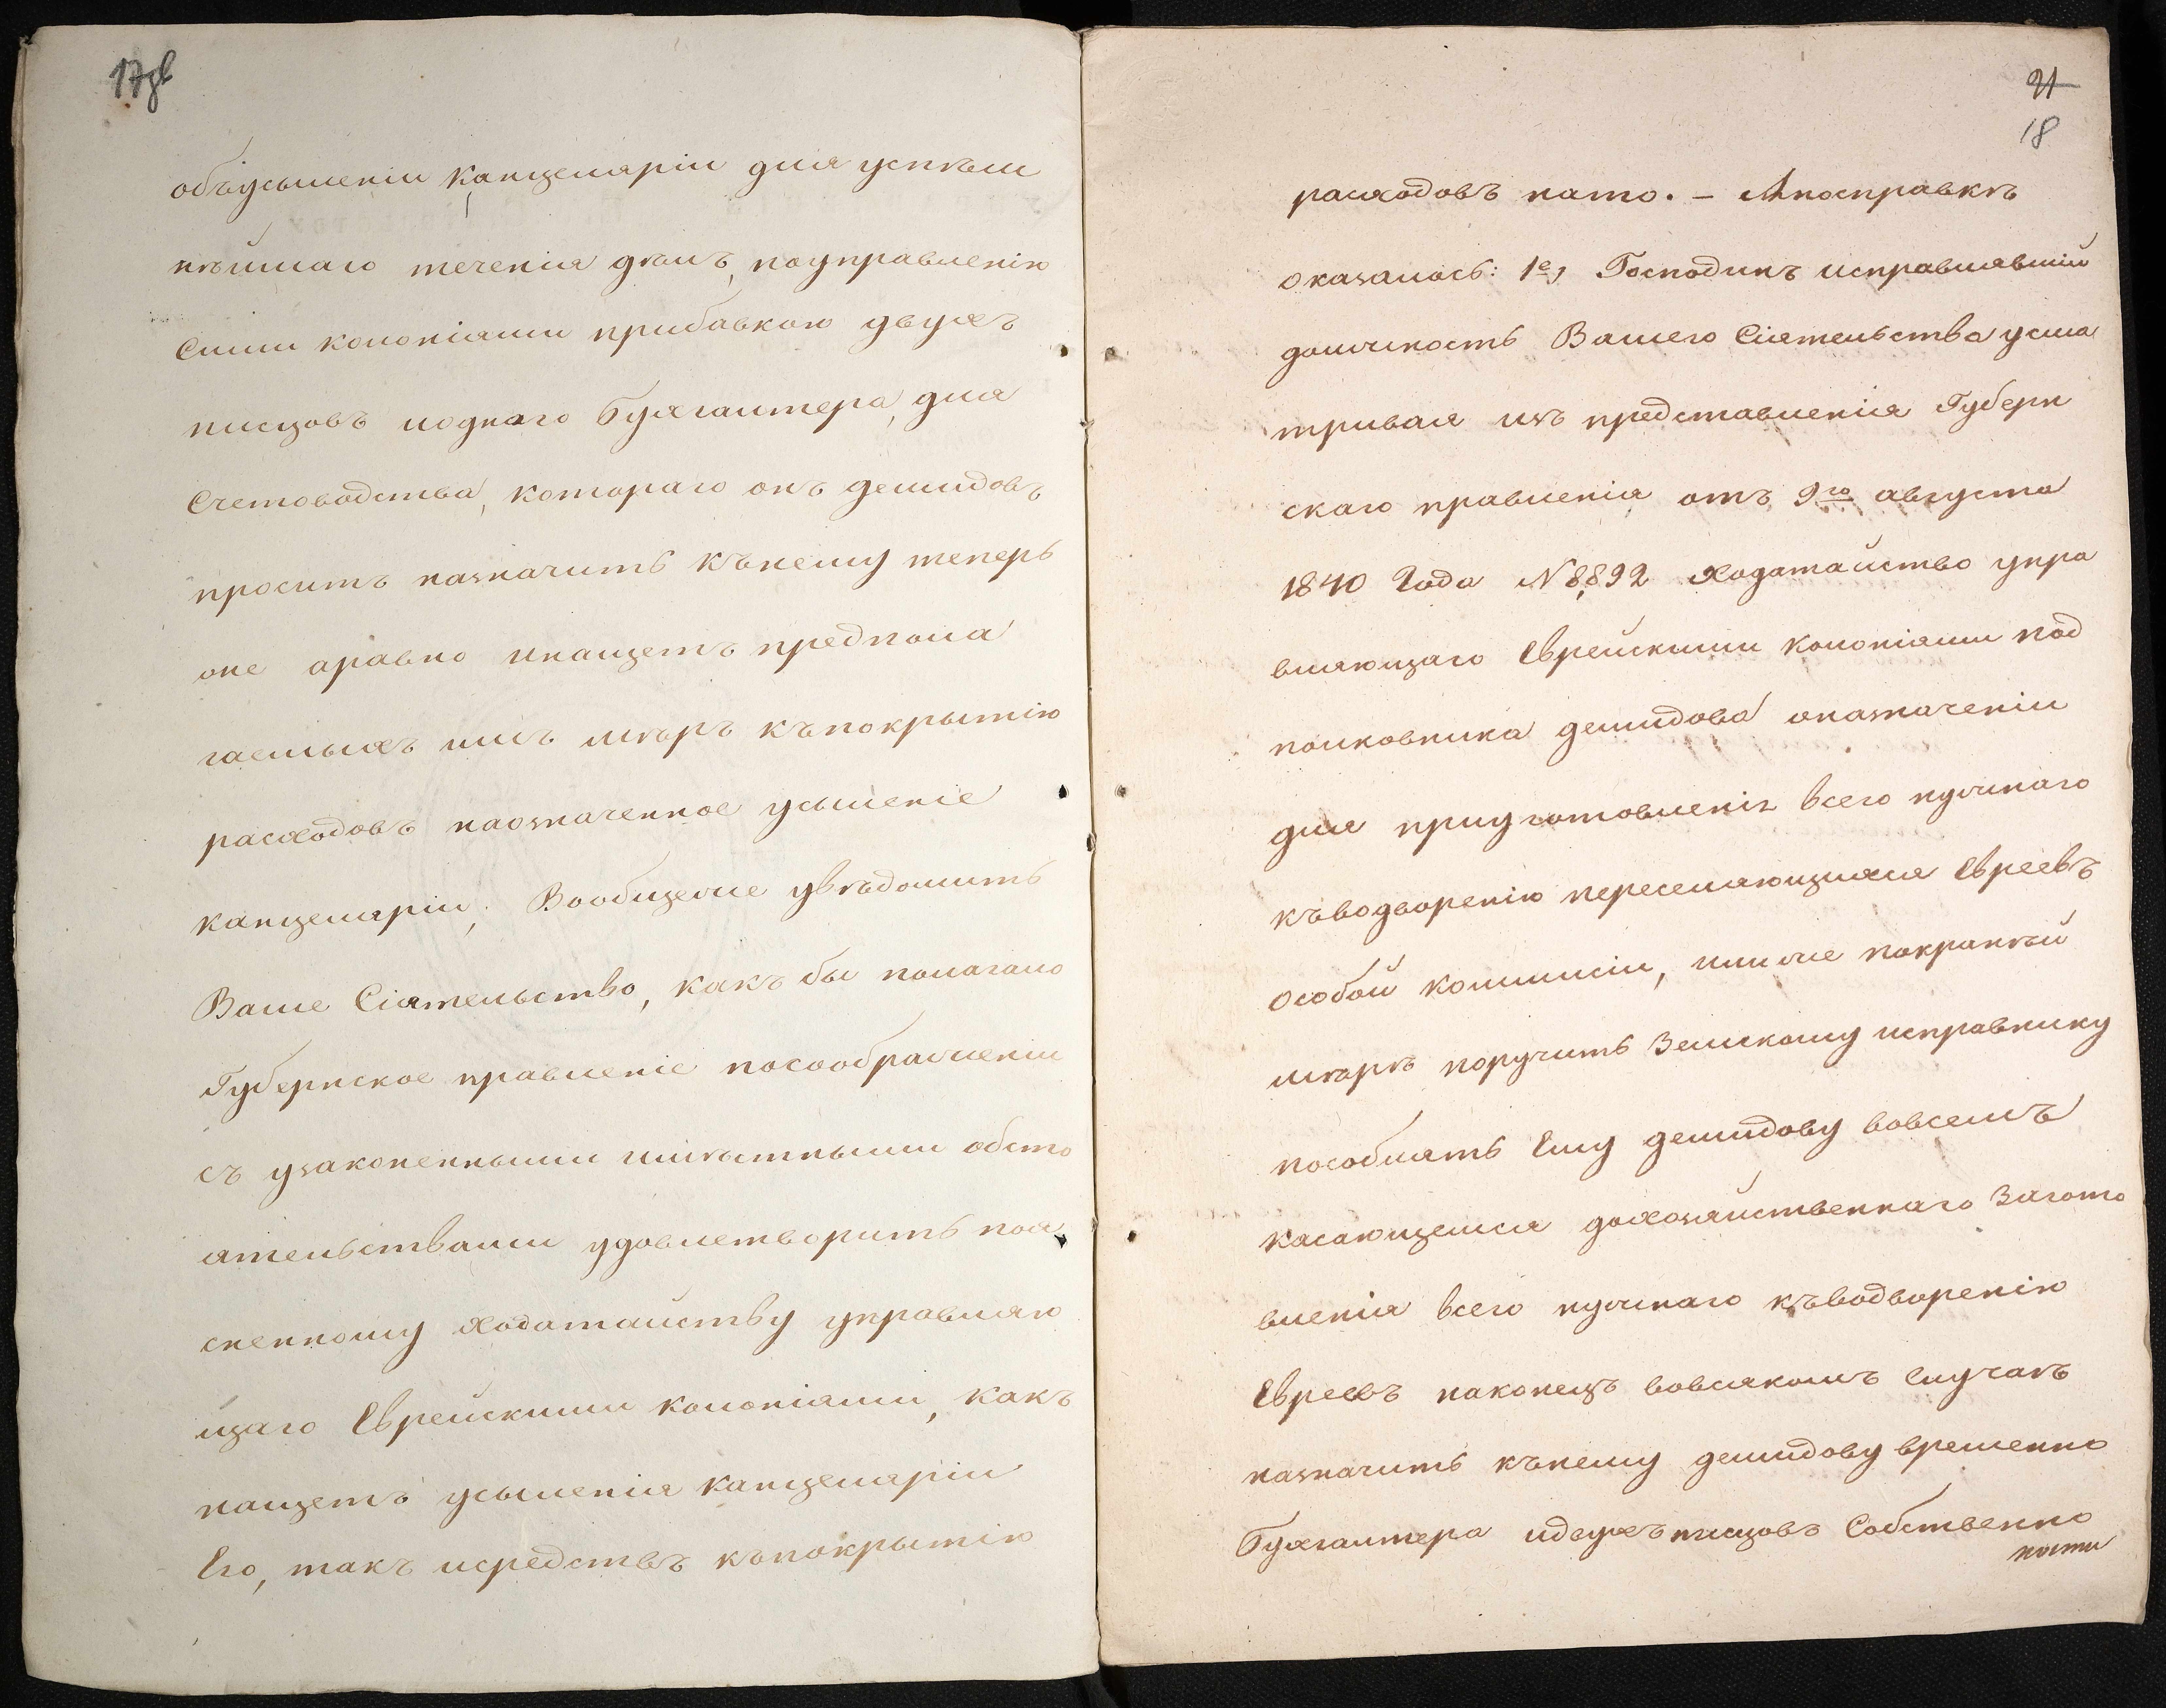 17зв
объусыленіи канцеляріи для успѣш
нѣйшаго теченія дѣлъ, поуправленію
Сими колоніями прибавкою двухъ
писцовъ иоднаго бухгалтера, для
Счетоводства, котораго онъ демидовъ
проситъ назначить кънему теперь
оне аравно инащетъ предпола
гаемыхъ имъ мѣръ къпокрытію
расходовъ наозначенное усыленіе
канцеляріи, Вообщеже увѣдомить
Ваше Сіятельство, какъ бы полагало
Губернское правленіе посоображеніи
съ узаконенными имѣстными обсто
ятельствами удовлетворить пояс
сненному ходатайству управляю
щаго Еврейскими колоніями, какъ
нащетъ усыленія канцеляріи
Его, такъ исредствъ къпокрытію
21
18
расходовъ нато. — Апосправкѣ
оказалось: 1е, Господинъ исправлявшій
должность Вашего Сіятельства усма
тривая изъ представленія Губерн
скаго правленія отъ 9го августа
1840 Года № 8,892 ходатайство упра
вляющаго Еврейскими колоніями под
полковника демидова оназначеніи
для приуготовленія всего нужнаго
къводворенію переселяющихся Евреевъ
особой коммисіи, илиже покрайнѣй
мѣрѣ поручить Земскому исправнику
пособлять Ему демидову вовсемъ
касающемся дохозяйственнаго Загото
вленія всего нужнаго къводворенію
Евреевъ наконецъ вовсякомъ Случаѣ
назначить кънему демидову временно
бухгалтера идвухъ писцовъ Собственно
ности